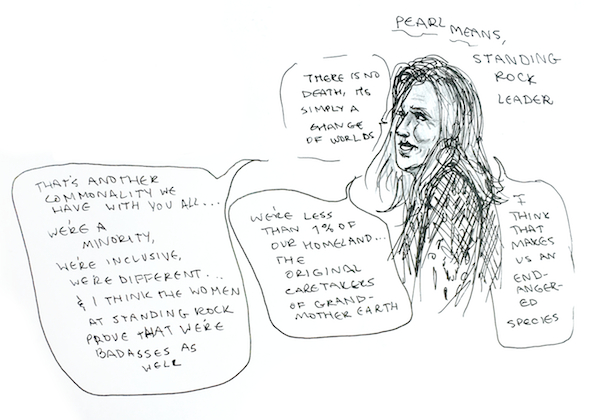 PEARL MEANS,
STANDING
ROCK
LEADER
THERE IS NO
DEATH, ITS
SIMPLY A
CHANGE
OF WORLDS
THAT'S ANOTHER
COMMONALITY WE
HAVE WITH YOU ALL...
WE'RE A
MINORITY,
WE'RE INCLUSIVE,
WE'RE DIFFERENT...
& I THINK THE WOMEN
AT STANDING ROCK
PROVE THAT WE'RE
BADASSES AS
WELL
WE'RE LESS
THAN 1% OF
OUR HOMELAND...
THE
ORIGINAL
CARETAKERS
OF GRAND-
MOTHER EARTH
I
THINK
THAT
MAKES
US AN
END-
ANGER-
ED
SPECIES